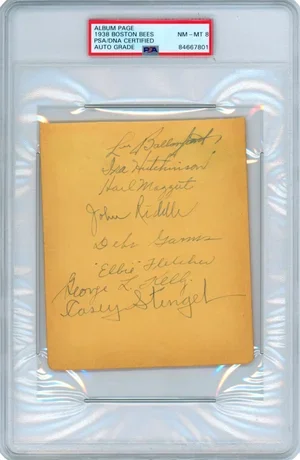 ALBUM PAGE
1938 BOSTON BEES NM - MT 8
PSA/DNA CERTIFIED
AUTO GRADE PSA 84667801
Ira Hutchinson
Harl Maggert
John Riddle
Debs Garms
"Elbie" Fletcher
George L. Kelly
Casey Stengel